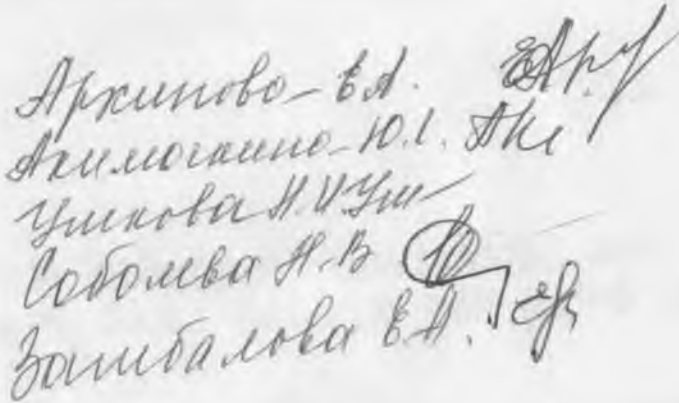 Архипова Е.А.
Акимочкина Ю.
Ушкова Н.И. Уш
Соболева Н.В
Зашбалова Е.А.